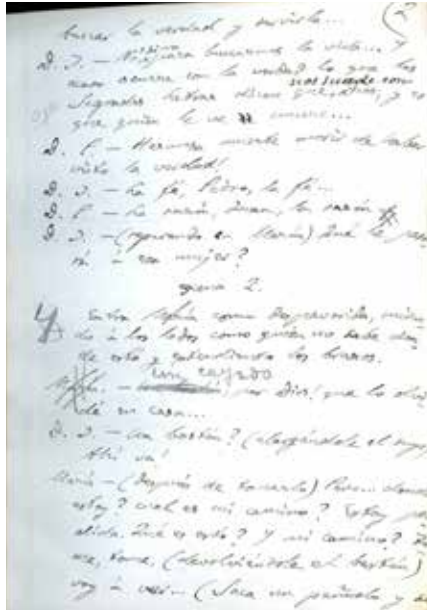 (2
buscar la verdad y morirla...
D. J. — buscarnos la vista... Y
acaso ocurra con la verdad lo que las
nos sucede como
Sagradas Letras dicen que, Dios, y es
que quien le ve se muere...
D. P. — Hermosa muerte morir de haber
visto la verdad!
D. J. — La fé, Pedro, la fé...
D. P. — La razón, Juan, la razón
D. J. — (reparando en María) Qué le pasa-
rá á esa mujer?
escena 2.
Entra María como despavorida, miran-
do á los lados como quien no sabe don-
de está y extendiendo los brazos.
Un cayado
por Dios! que lo olvi-
dé en casa...
D. J. — Un bastón? (alargándole el suyo)
Ahí va!
María — (después de tomarlo) Pero... donde
estoy? cual es mi camino? Estoy per-
dida. Qué es esto? Y mi camino? To-
me, tome, (devolviéndole el bastón)
voy á ver... (Saca un pañuelo y